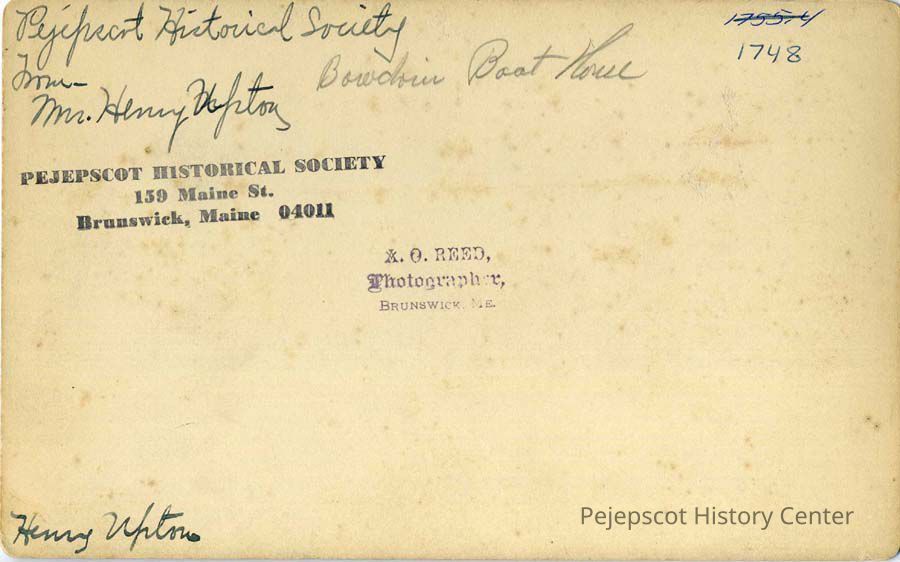 Pejepscot Historical Society
from-
Mr. Henry Upton
Bowdoin Boat House
1755.4
1748
PEJEPSCOT HISTORICAL SOCIETY
159 Maine St.
Brunswick, Maine 04011
A. O. REED,
Photographer,
BRUNSWICK, ME.
Henry Upton
Pejepscot History Center